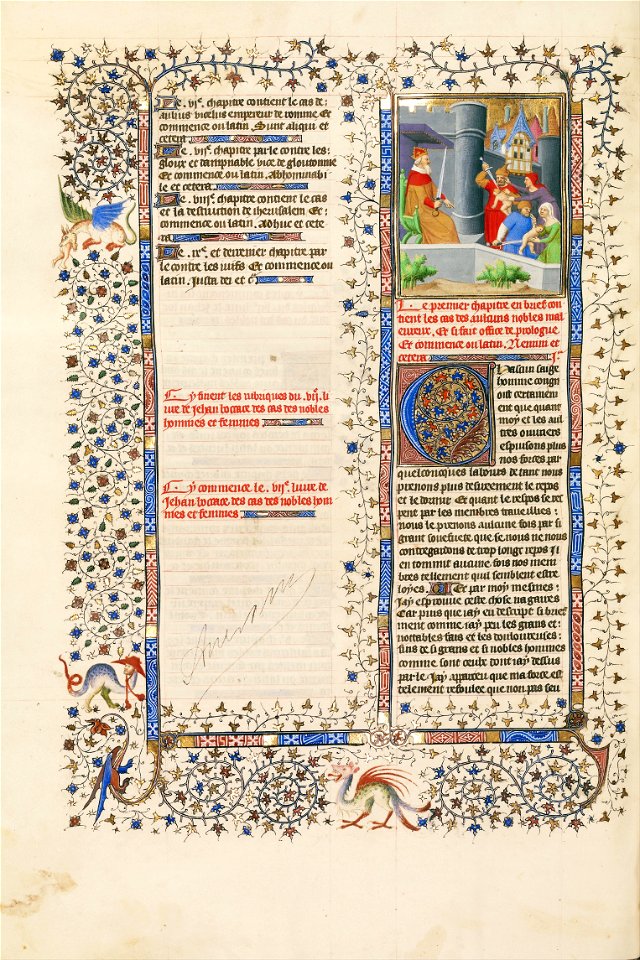 Le .vi^e. chapitre contient le cas de
aulus vitelius empereur de romme Et
commence ou latin . Sunt aliqui et
cetera
Le .vii^e. chapitre parle contre les
gloux et dampnable vice de gloutonnie
Et commence ou latin . Abhominabi
le et cetera
Le .viii^e. chapitre contient le cas
et la destruction de iherusalem Et
commence ou latin . Adhuc et cete
ra
Le .ix^e. et derrenier chapitre par
le contre les iuifs Et commence ou
latin . Justa dei et c
Cy finent les rubriques du .vii^e. li
ure de Jehan bocace des cas des nobles
hommes et femmes
Cy commence le .vii^e. liure de
Jehan bocace des cas des nobles hom
mes et femmes
Le premier chapitre en brief con
tient les cas des aulcuns nobles mal
eureux. Et si fait office de prologue
Et commence ou latin . Nemini et
cetera
Chascun saige
homme congn
oist certainem
ent que quant
moy et les aul
tres ouuriers
espuisons plus
nos forces par
quelconques labours de tant nous
prenons plus doulcement le repos
et le dormir Et quant le repos se re
prent par les membres traueillies
nous le prenons aulcune fois par si
grant que se nous ne nous
contregardons de trop longe repos il
en tommit aulcune fois nos mem
bres tellement quil semblent estre
loyes . Et par moy mesmes
Jay esprouue ceste chose na gaires
Car puis que iay en descript si brief
ment comme iay peu les grans et
nottables fais et les douloureuses
fins de si grans et si nobles hommes
comme sont ceulx dont iay dessus
parle . Jay apparceu que ma force est
tellement refoulee que non pas seu